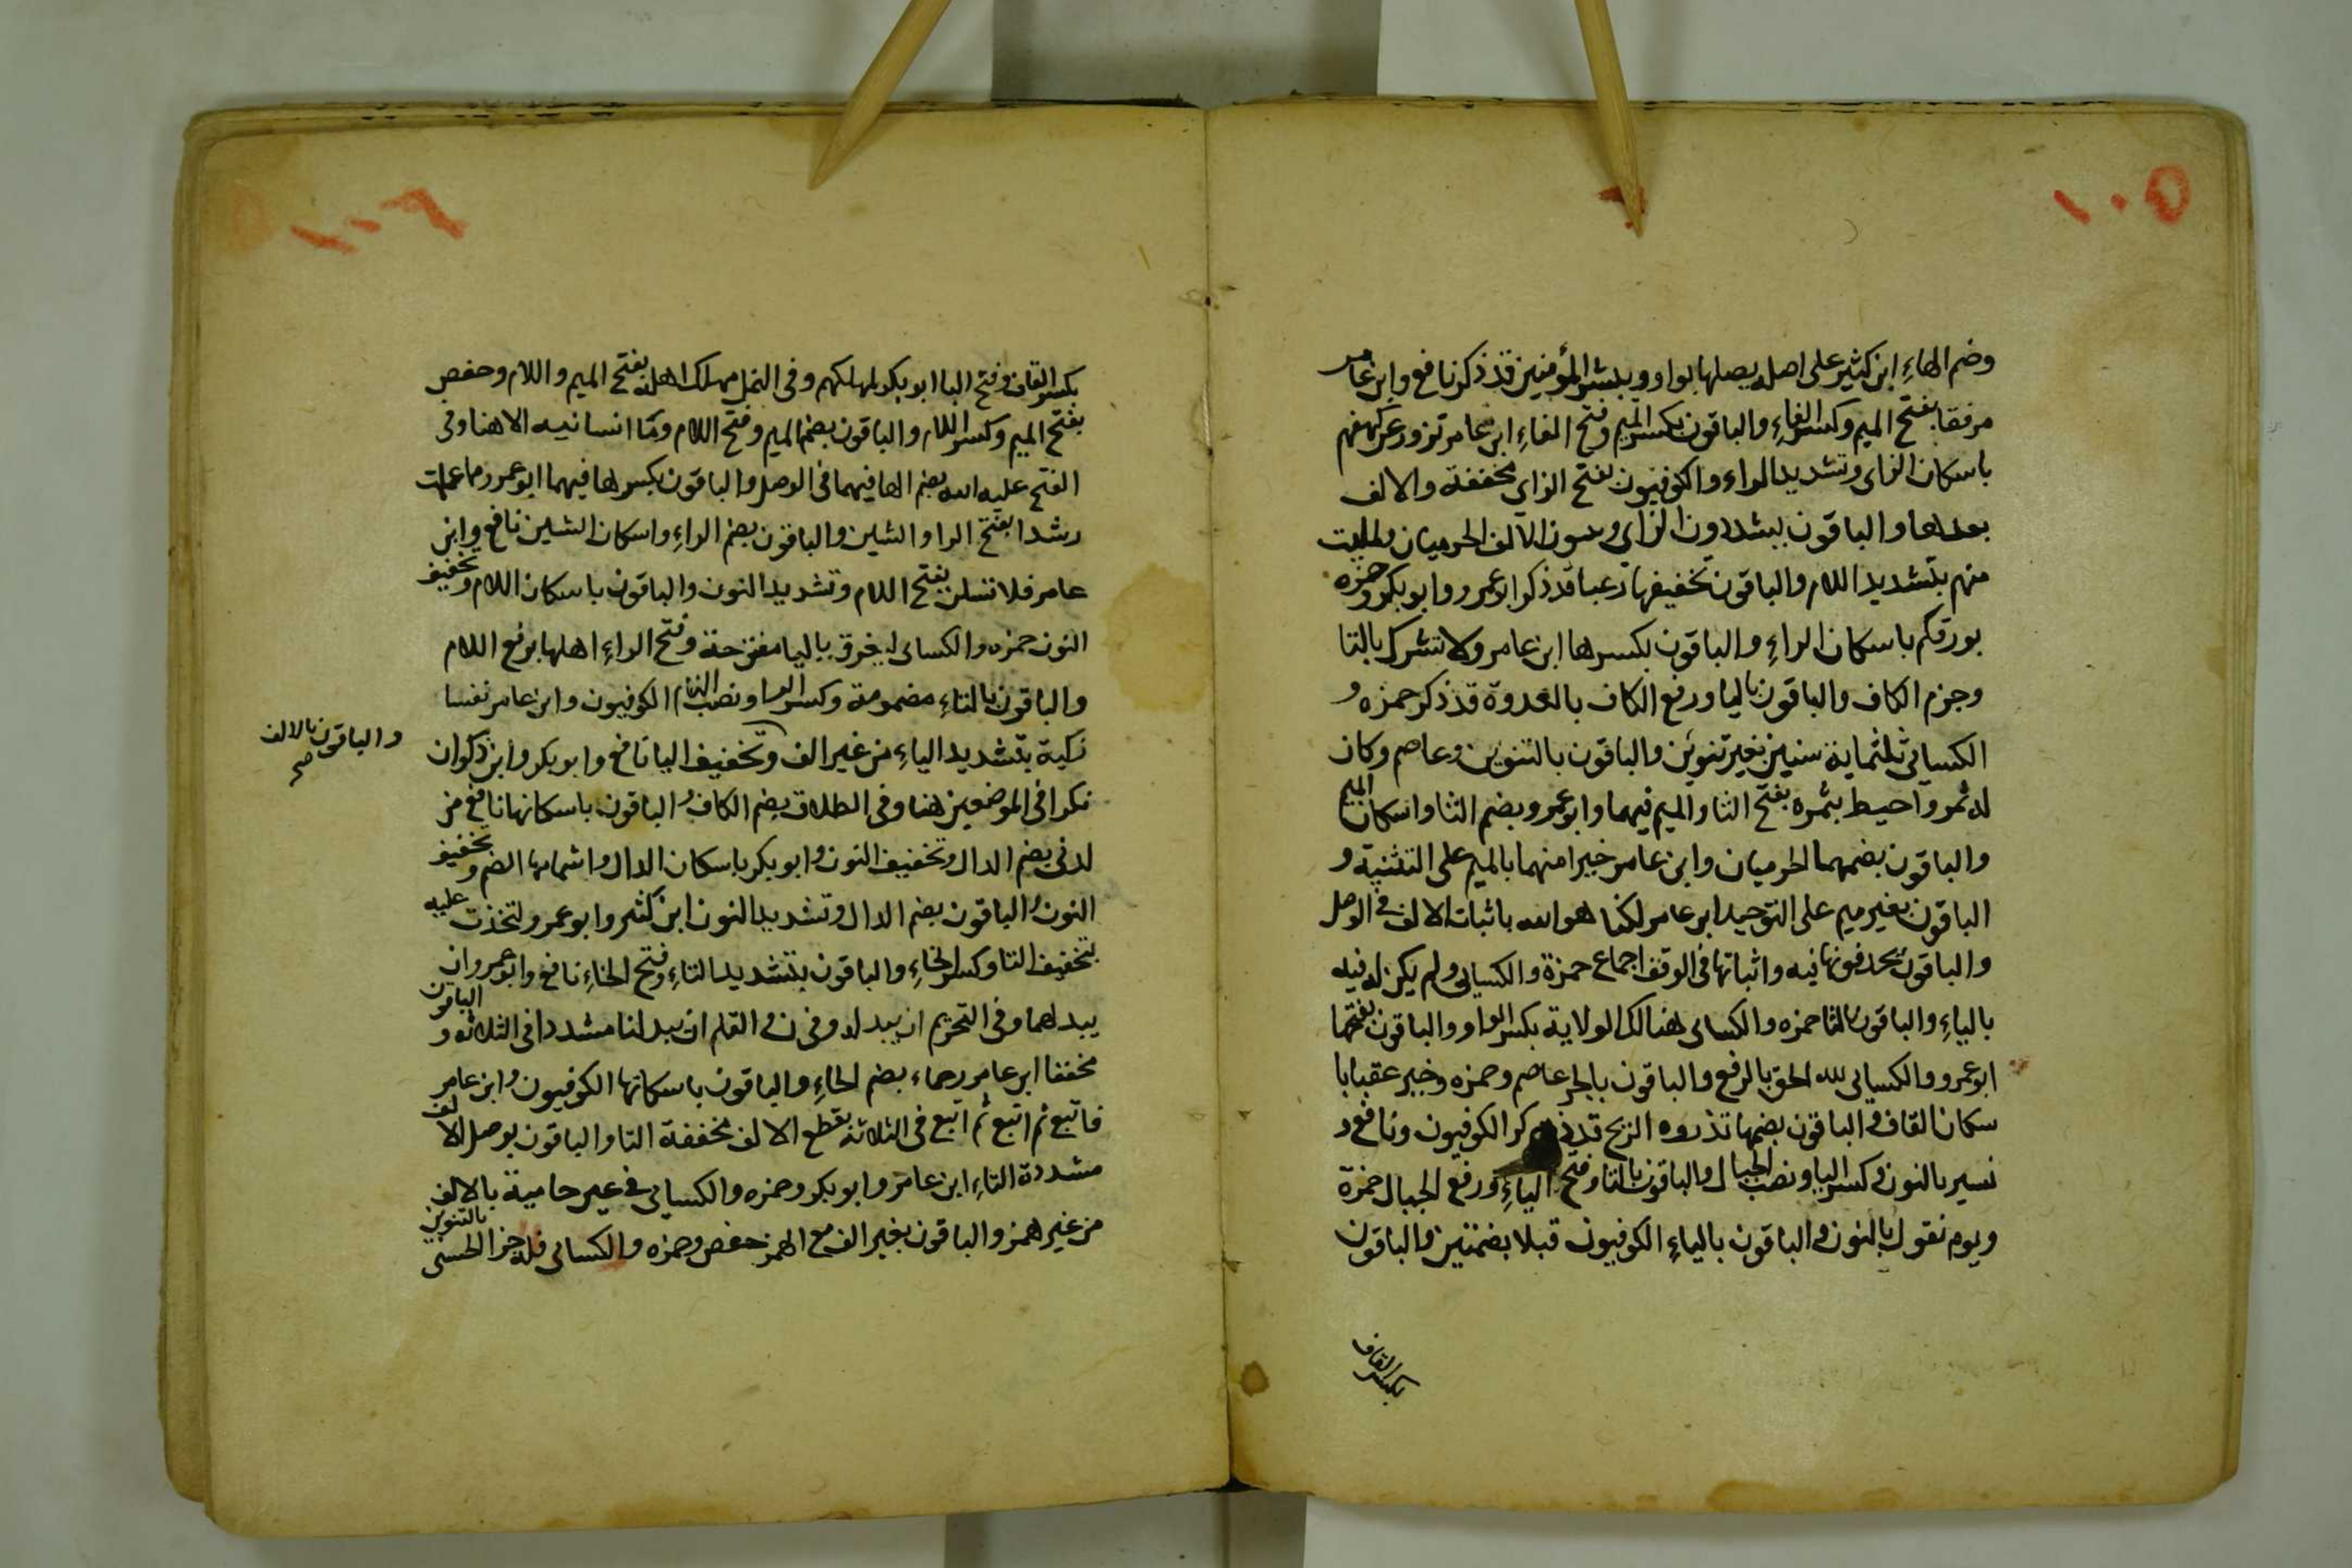 ١٠٥
وضم الهاءِ ابن كثير على اصله يصلها بواو ويبشر المؤمنين قد ذكر نافع وابن عامر
مرفقا بفتح الميم وكسر الفاءِ والباقون بكسر الميم وفتح الفاءِ ابن عامر تزور عن كهفهم
باسكان الزاى وتشديد الراء والكوفيون بفتح الزاى مخففة والالف
بعدها والباقون يشددون الزاي ويثبتون الالف الحرميان ولملئت
منهم بتشديد اللام والباقون بتخفيفها رعبا قد ذكر ابو عمرو وابو بكر وحمزه
بورقكم باسكان الراءِ والباقون بكسرها ابن عامر ولا تشرك بالتا
وجزم الكاف والباقون باليا ورفع الكاف بالغدوة قد ذكر حمزه و
الكسائى ثلثماية سنين بغير تنوين والباقون بالتنوين وعاصم وكان
له ثمر واحيط بثمره بفتح الثا والميم فيهما وابو عمرو بضم الثا واسكان الميم
والباقون بضمهما الحرميان وابن عامر خيرا منهما بالميم على التثنية و
الباقون بغير ميم على التوحيد ابن عامر لكنا هو الله باثبات الالف فى الوصل
والباقون يحذفونها فيه واثباتها فى الوقف اجماع حمزة والكسائى ولم يكن له فيه
بالياءِ والباقون بالتا حمزه والكسائى هنالك الولاية بكسر الواو والباقون بفتحها
ابو عمرو والكسائى لله الحق بالرفع والباقون بالجر عاصم وحمزه وخير عقبا با
سكان القاف والباقون بضمها تذروه الريح قد ذكر الكوفيون ونافع و
نسير بالنون وكسر اليا ونصب الجبال والباقون بالتا وفتح الياءِ ورفع الجبال حمزة
ويوم نقول بالنون والباقون بالياءِ الكوفيون قبلا بضمتين والباقون
بكسر القاف
١٠٦
بكسر القاف وفتح البا ابو بكر لمهلكهم وفى النمل مهلك اهله بفتح الميم واللام وحفص
بفتح الميم وكسر اللام والباقون بضم الميم وفتح اللام وما انسانيه الا هنا وفى
الفتح عليه الله بضم الها فيهما فى الوصل والباقون بكسرها فيهما ابو عمرو مما علمت
رشدا بفتح الرا والشين والباقون بضم الراءِ واسكان الشين نافع وابن
عامر فلا تسلن بفتح اللام وتشديد النون والباقون باسكان اللام وتخفيف
النون حمزه والكسائى ليغرق باليا مفتوحة وفتح الراءِ اهلها برفع اللام
والباقون بالتاءِ مضمومة وكسر الرا ونصب اللام الكوفيون وابن عامر نفسا
زكية بتشديد الياءِ من غير الف وتخفيف اليا نافع وابو بكر وابن ذكوان
والباقون بالالف صح
نكرا فى الموضعين هنا وفى الطلاق بضم الكاف والباقون باسكانها نافع من
لدنى بضم الدال وتخفيف النون وابو بكر باسكان الدال واشمامها الضم وتخفيف
النون والباقون بضم الدال وتشديد النون ابن كثير وابو عمرو لتخذت عليه
بتخفيف التا وكسر الخاءِ والباقون بتشديد التاءِ وفتح الخاءِ نافع وابو عمرو ان
يبدلهما وفى التحريم ان يبدله وفى ن والقلم ان يبدلنا مشددا فى الثلاثه والباقون
مخففا ابن عامر رحماء بضم الحاءِ والباقون باسكانها الكوفيون وابن عامر
فاتبع ثم اتبع ثم اتبع فى الثلاثة بقطع الالف مخففة التا والباقون بوصل الالف
مشددة التاءِ ابن عامر وابو بكر وحمزه والكسائى فى عين حامية بالالف
من غير همز والباقون بغير الف مع الهمز حفص وحمزه والكسائى فله جزا الحسنى بالتنوين